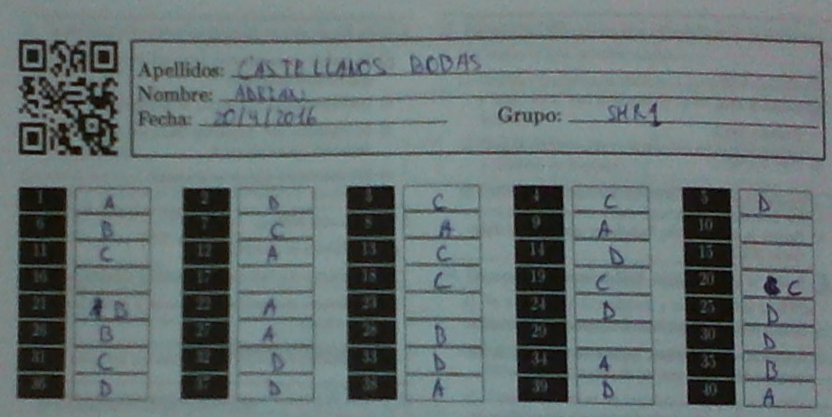 Apellidos: CASTELLANOS BODAS
Nombre: ADRIAN
Fecha: 20/4/2016 Grupo: SMR1
1 A 2 D 3 C 4 C 5 D
6 B 7 C 8 A 9 A 10
11 C 12 A 13 C 14 D 15
16 17 18 C 19 C 20 C
21 B 22 A 23 24 D 25 D
26 B 27 A 28 B 29 30 D
31 C 32 D 33 D 34 A 35 B
36 D 37 D 38 A 39 D 40 A